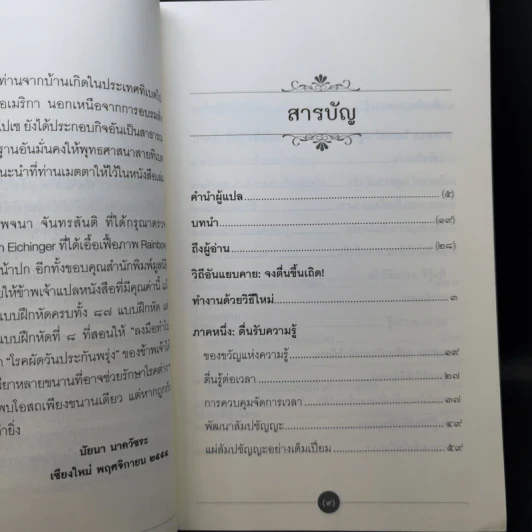 ท่านจากบ้านเกิดในประเทศทิเบตไป
อเมริกา นอกเหนือจากการอบรมสั่ง
ไปเช ยังได้ประกอบกิจอันเป็นสาธารณ
ฐานอันมั่นคงให้พุทธศาสนาสายทิเบต
นะนำที่ท่านเมตตาให้ไว้ในหนังสือเล่ม
พจนา จันทรสันติ ที่ได้กรุณาตรวจ
Eichinger ที่ได้เอื้อเฟื้อภาพ Rainbow
น้าปก อีกทั้งขอบคุณสำนักพิมพ์มูลนิ
ยให้ข้าพเจ้าแปลหนังสือที่มีคุณค่านี้
แบบฝึกหัดครบทั้ง ๘๗ แบบฝึกหัด
แบบฝึกหัดที่ ๘ ที่สอนให้ "ลงมือทำใ
"โรคผัดวันประกันพรุ่ง" ของข้าพเจ้าไ
ยาหลายขนานที่อาจช่วยรักษาโรคต่าง
พบโอสถเพียงขนานเดียว แต่หากถูกกับ
ยิ่ง
นัยนา นาควัชระ
เชียงใหม่ พฤศจิกายน ๒๕๕๕
สารบัญ
คำนำผู้แปล (๕)
บทนำ (๑๙)
ถึงผู้อ่าน (๒๘)
วิถีอันแยบคาย: จงตื่นขึ้นเถิด!
ทำงานด้วยวิธีใหม่ ๓
ภาคหนึ่ง: ตื่นรับความรู้
ของขวัญแห่งความรู้ ๑๙
ตื่นรู้ต่อเวลา ๒๗
การควบคุมจัดการเวลา ๓๗
พัฒนาสัมปชัญญะ ๔๙
แผ่สัมปชัญญะอย่างเต็มเปี่ยม ๕๙
(๙)